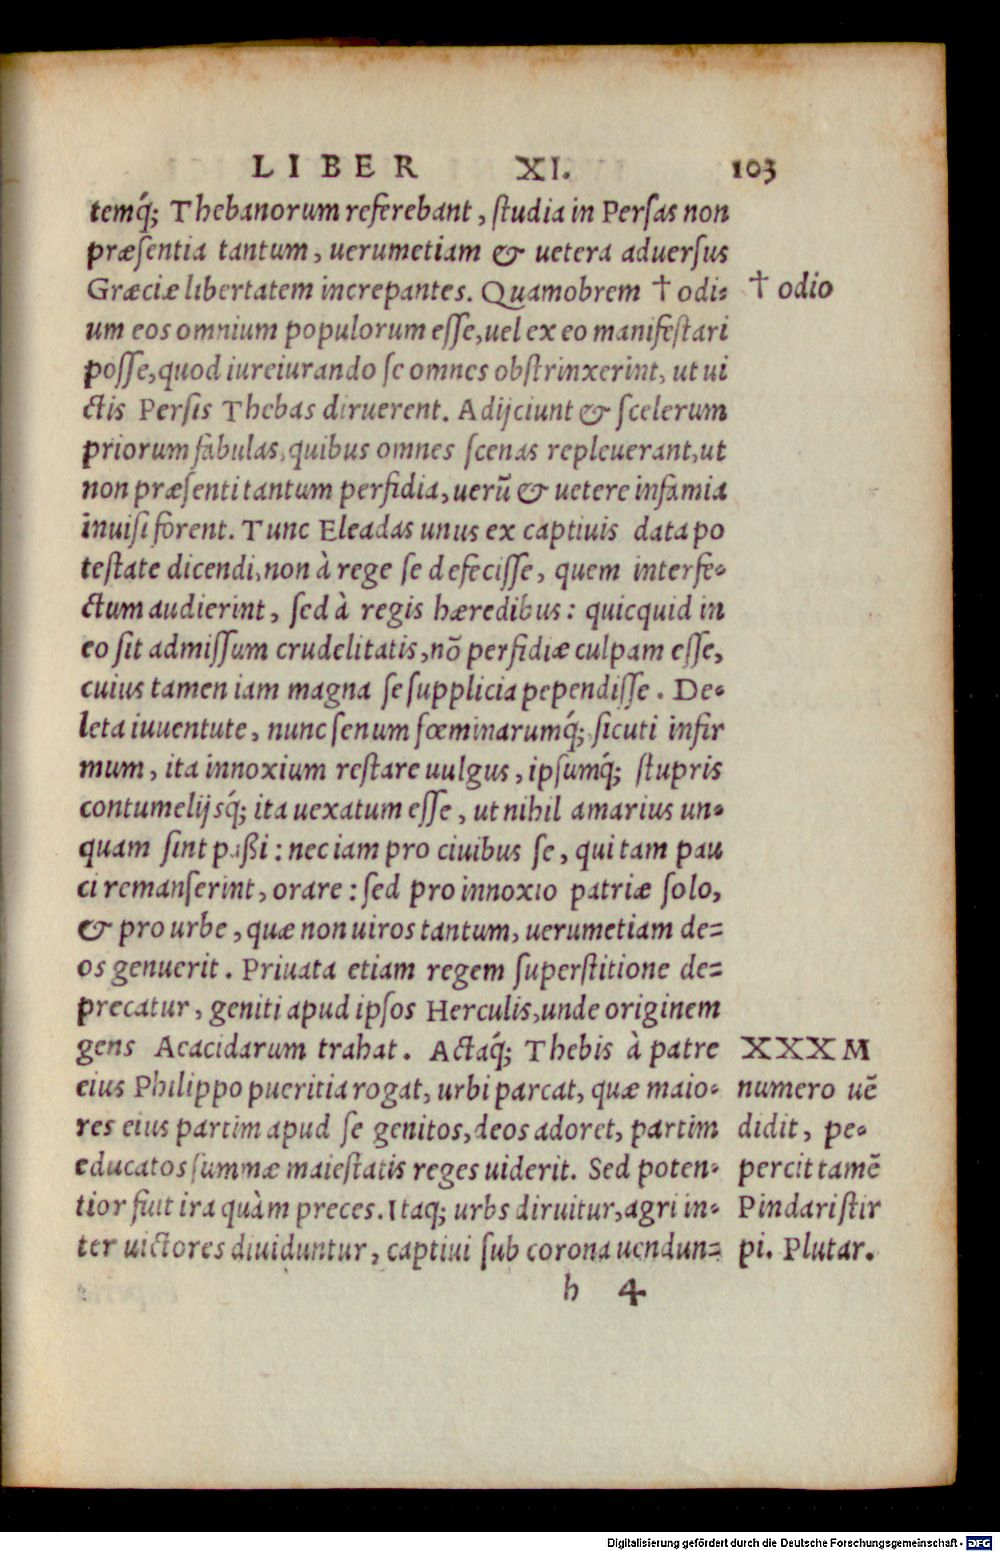 LIBER XI. 103
temq́; Thebanorum referebant, ſtudia in Perſas non
præſentia tantum, uerumetiam & uetera aduerſus
Græciæ libertatem increpantes. Quamobrem † odi-
† odio
um eos omnium populorum eſſe, uel ex eo manifeſtari
poſſe, quod iureiurando ſe omnes obſtrinxerint, ut ui
ctis Perſis Thebas diruerent. Adijciunt & ſcelerum
priorum fabulas, quibus omnes ſcenas repleuerant, ut
non præſenti tantum perfidia, uerū & uetere infamia
inuiſi forent. Tunc Eleadas unus ex captiuis data po
teſtate dicendi, non à rege ſe defeciſſe, quem interfe-
ctum audierint, ſed à regis hæredibus: quicquid in
eo ſit admiſſum crudelitatis, nō perfidiæ culpam eſſe,
cuius tamen iam magna ſe ſupplicia pependiſſe. De-
leta iuuentute, nunc ſenum fœminarumq́; ſicuti infir
mum, ita innoxium reſtare uulgus, ipſumq́; ſtupris
contumelijsq́; ita uexatum eſſe, ut nihil amarius un-
quam ſint paßi: nec iam pro ciuibus ſe, qui tam pau
ci remanſerint, orare: ſed pro innoxio patriæ ſolo,
& pro urbe, quæ non uiros tantum, uerumetiam de=
os genuerit. Priuata etiam regem ſuperſtitione de=
precatur, geniti apud ipſos Herculis, unde originem
gens Aeacidarum trahat. Actaq́; Thebis à patre
eius Philippo pueritia rogat, urbi parcat, quæ maio-
res eius partim apud ſe genitos, deos adoret, partim
educatos ſummæ maieſtatis reges uiderit. Sed poten-
tior fuit ira quàm preces. Itaq; urbs diruitur, agri in-
ter uictores diuiduntur, captiui ſub corona uendun=
XXXM
numero uē
didit, pe-
percit tamē
Pindari ſtir
pi. Plutar.
h 4
Digitalisierung gefördert durch die Deutsche Forschungsgemeinschaft - DFG